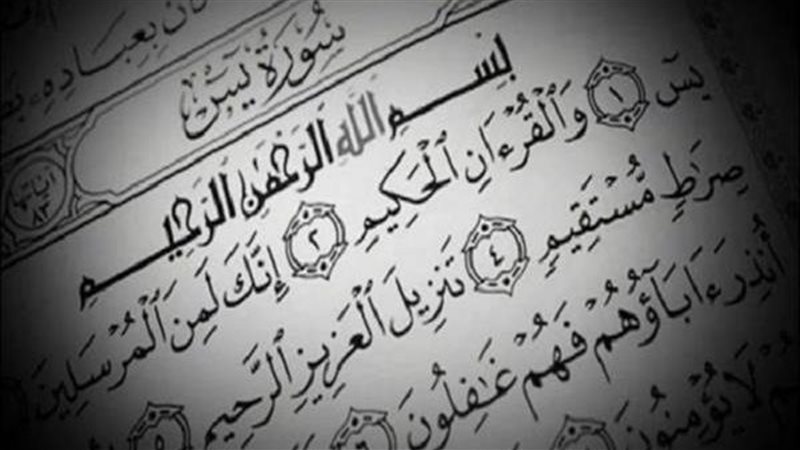 بِعِبَادِهِۦ
سُورَةُ يسٓ
آيَاتُهَا ٨٣
بِسْمِ ٱللَّهِ ٱلرَّحْمَٰنِ ٱلرَّحِيمِ
يسٓ ١ وَٱلْقُرْءَانِ ٱلْحَكِيمِ ٢ إِنَّكَ لَمِنَ ٱلْمُرْسَلِينَ
صِرَٰطٍ مُّسْتَقِيمٍ ٤ تَنزِيلَ ٱلْعَزِيزِ ٱلرَّحِيمِ ٥
أُنذِرَ ءَابَآؤُهُمْ فَهُمْ غَٰفِلُونَ ٦
لَا يُؤْمِنُونَ